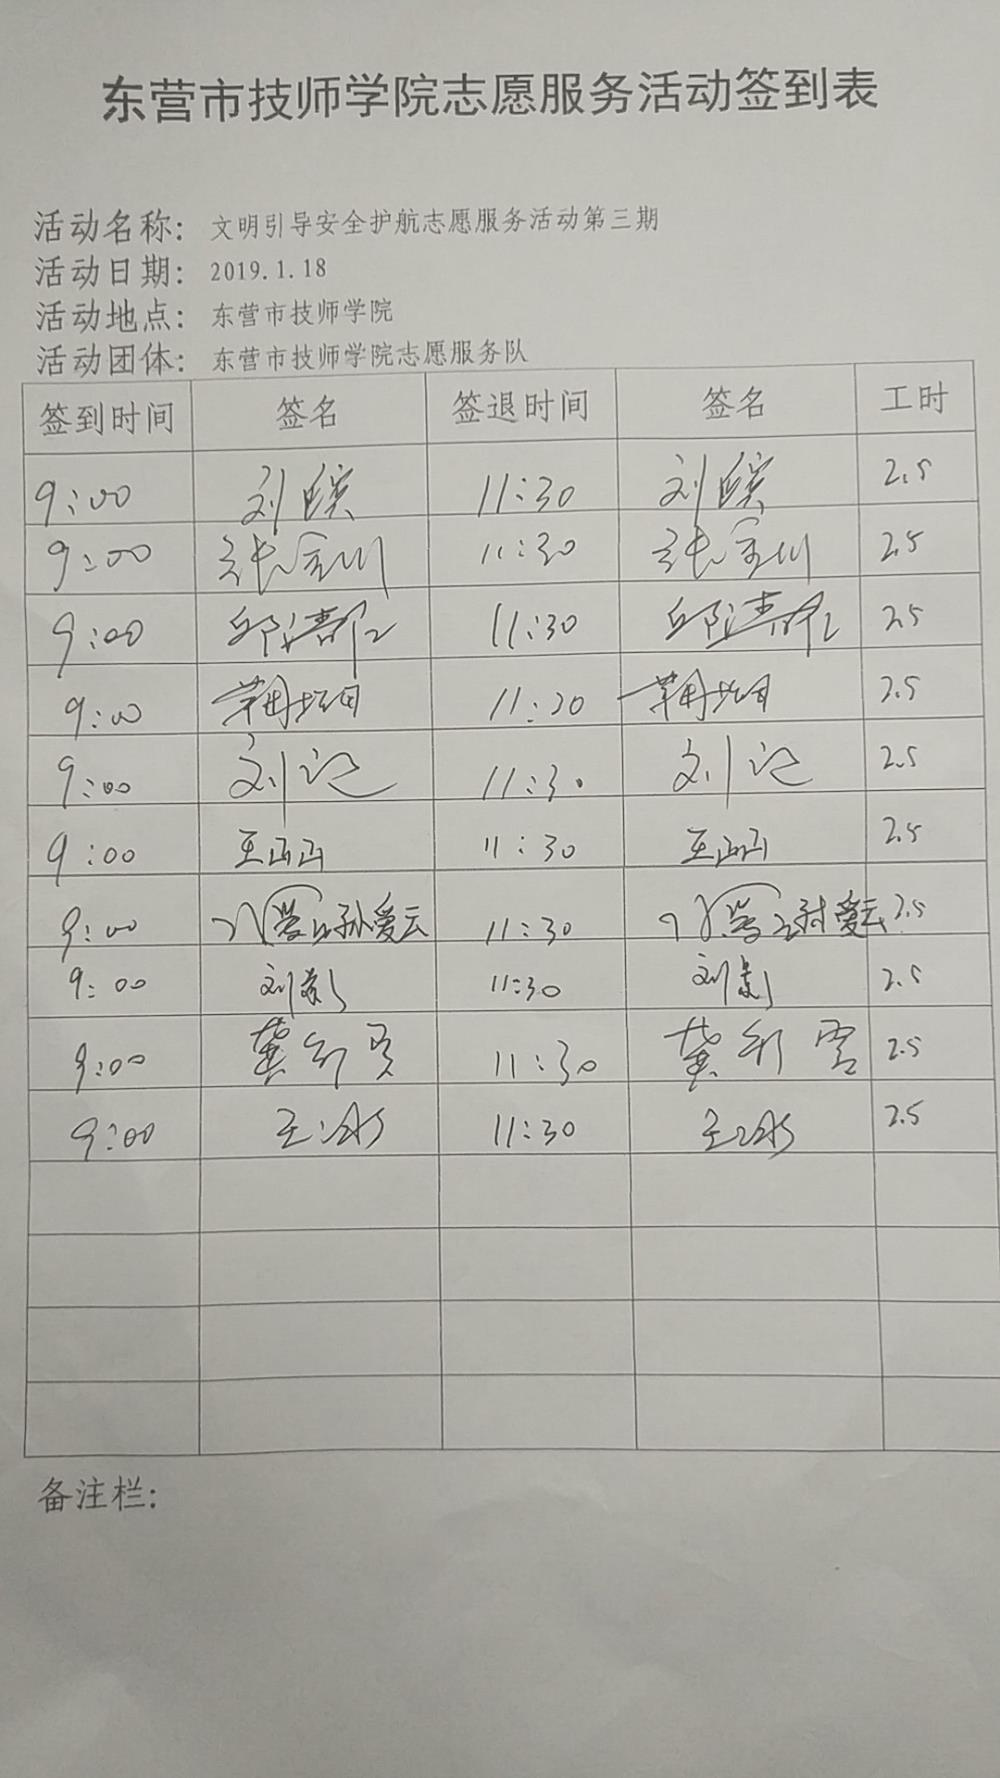 东营市技师学院志愿服务活动签到表
活动名称: 文明引导安全护航志愿服务活动第三期
活动日期: 2019.1.18
活动地点: 东营市技师学院
活动团体: 东营市技师学院志愿服务队
签到时间 签名 签退时间 签名 工时
9:00 刘 11:30 刘 2.5
9:00 张金川 11:30 张金川 2.5
9:00 邱 11:30 邱 2.5
9:00 11:30 2.5
9:00 刘 11:30 刘 2.5
9:00 王函函 11:30 王函函 2.5
9:00 孙爱云 11:30 孙爱云 2.5
9:00 刘彩 11:30 刘彩 2.5
9:00 龚 11:30 龚 2.5
9:00 王冰 11:30 王冰 2.5
备注栏: